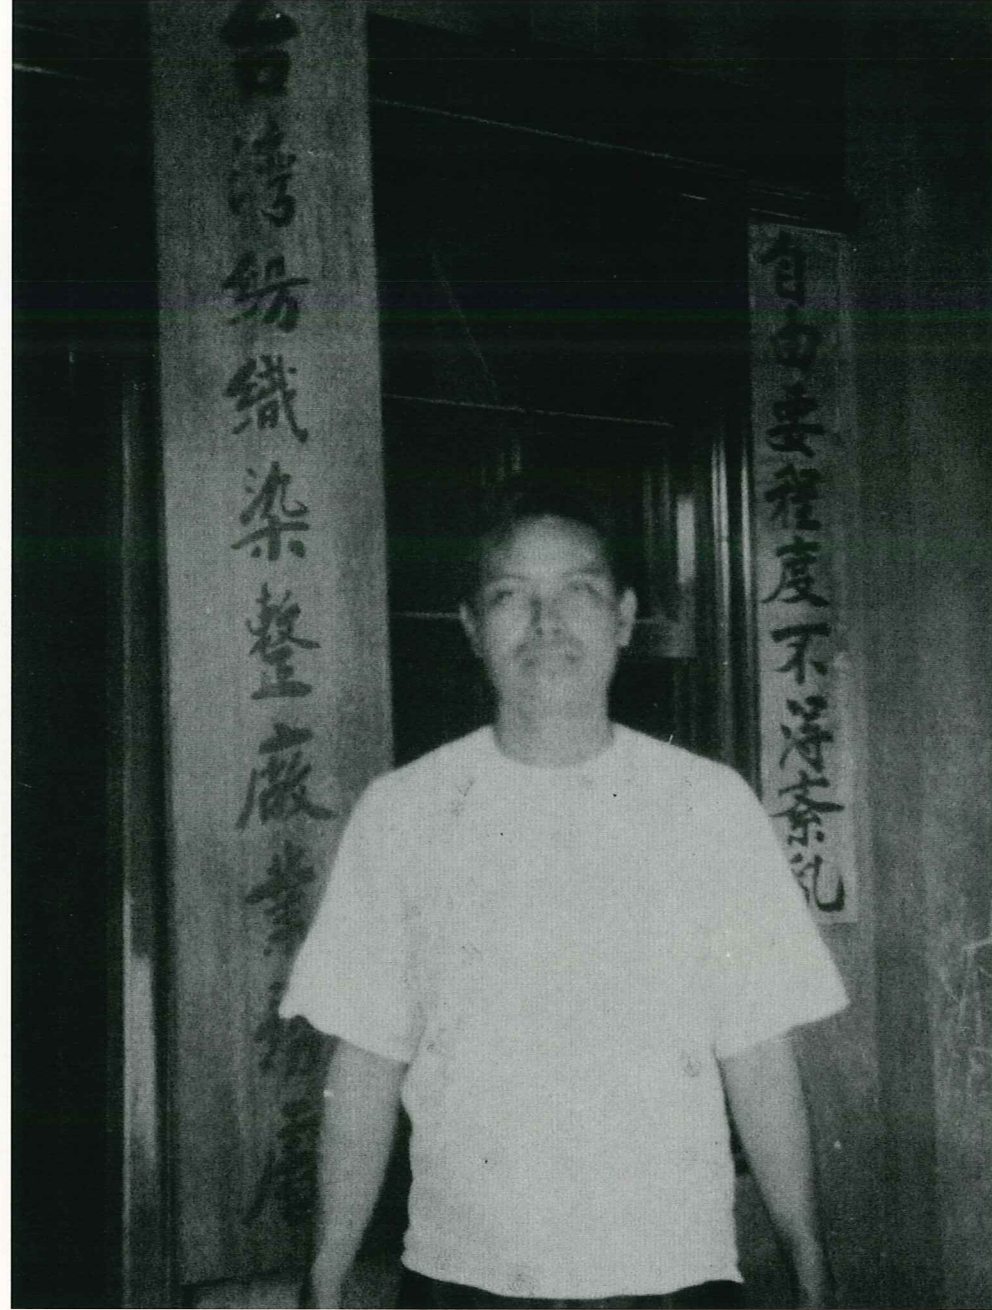 自由要程度不得紊乱
台湾紡織染整廠